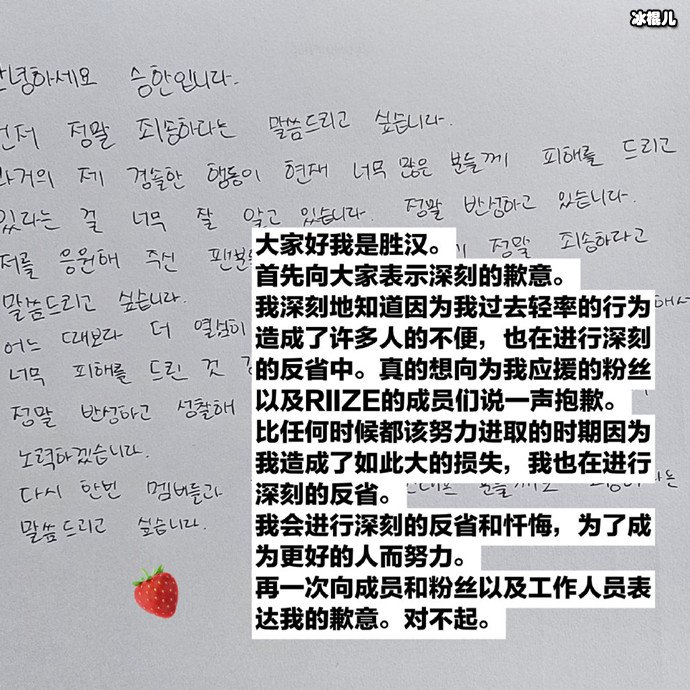 冰棍儿
안녕하세요 승한입니다.
먼저 정말 죄송하다는 말씀드리고 싶습니다.
과거의 제 경솔한 행동이 현재 너무 많은 분들께 피해를 드리고
있다는 걸 너무 잘 알고 있습니다. 정말 반성하고 있습니다.
저를 응원해 주신 팬분들 정말 죄송하다고
말씀드리고 싶습니다.
어느 때보다 더 열심히
너무 피해를 드린 것
정말 반성하고 성찰해
노력하겠습니다.
다시 한번 멤버들과
말씀드리고 싶습니다.
大家好我是胜汉。
首先向大家表示深刻的歉意。
我深刻地知道因为我过去轻率的行为
造成了许多人的不便，也在进行深刻
的反省中。真的想向为我应援的粉丝
以及RIIZE的成员们说一声抱歉。
比任何时候都该努力进取的时期因为
我造成了如此大的损失，我也在进行
深刻的反省。
我会进行深刻的反省和忏悔，为了成
为更好的人而努力。
再一次向成员和粉丝以及工作人员表
达我的歉意。对不起。